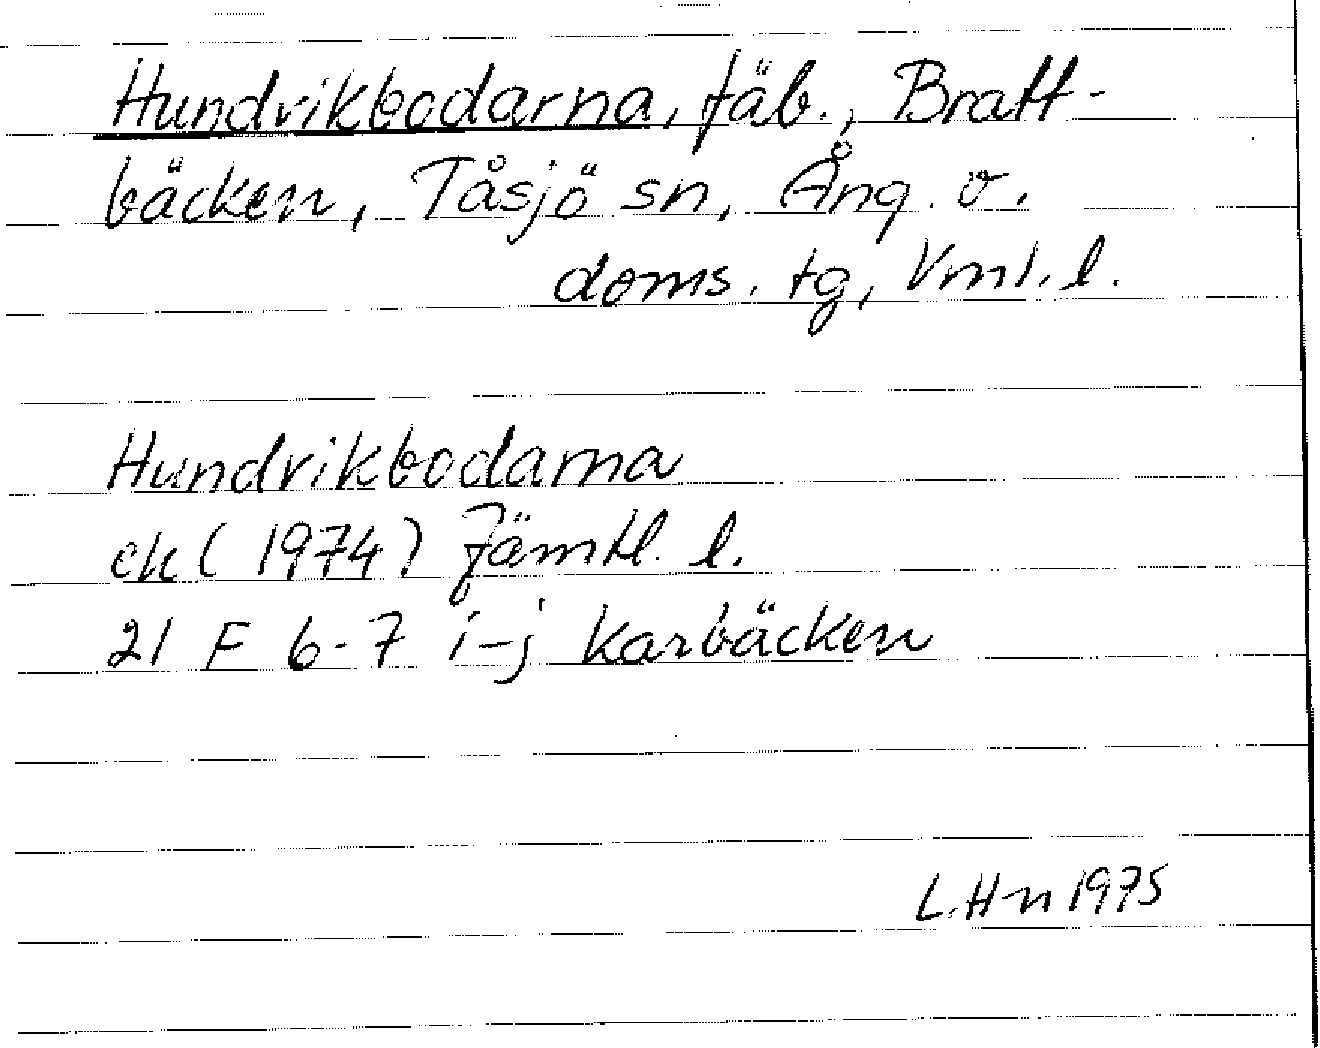 Hundvikbodarna, fäb., Bratt-
bäcken, Tåsjö sn, Ång. v.
doms. tg, Vml. l.
Hundvikbodarna
ek (1974) Jämtl. l.
21 F 6-7 i-j Karbäcken
L.Hn 1975